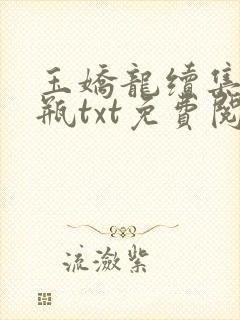 玉嬌龍續集
瓶txt免費閱
流瀲紫